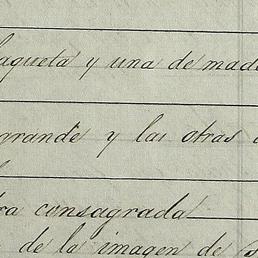 laqueta y una de made
grande y las otras
ra consagrada
de la imagen de